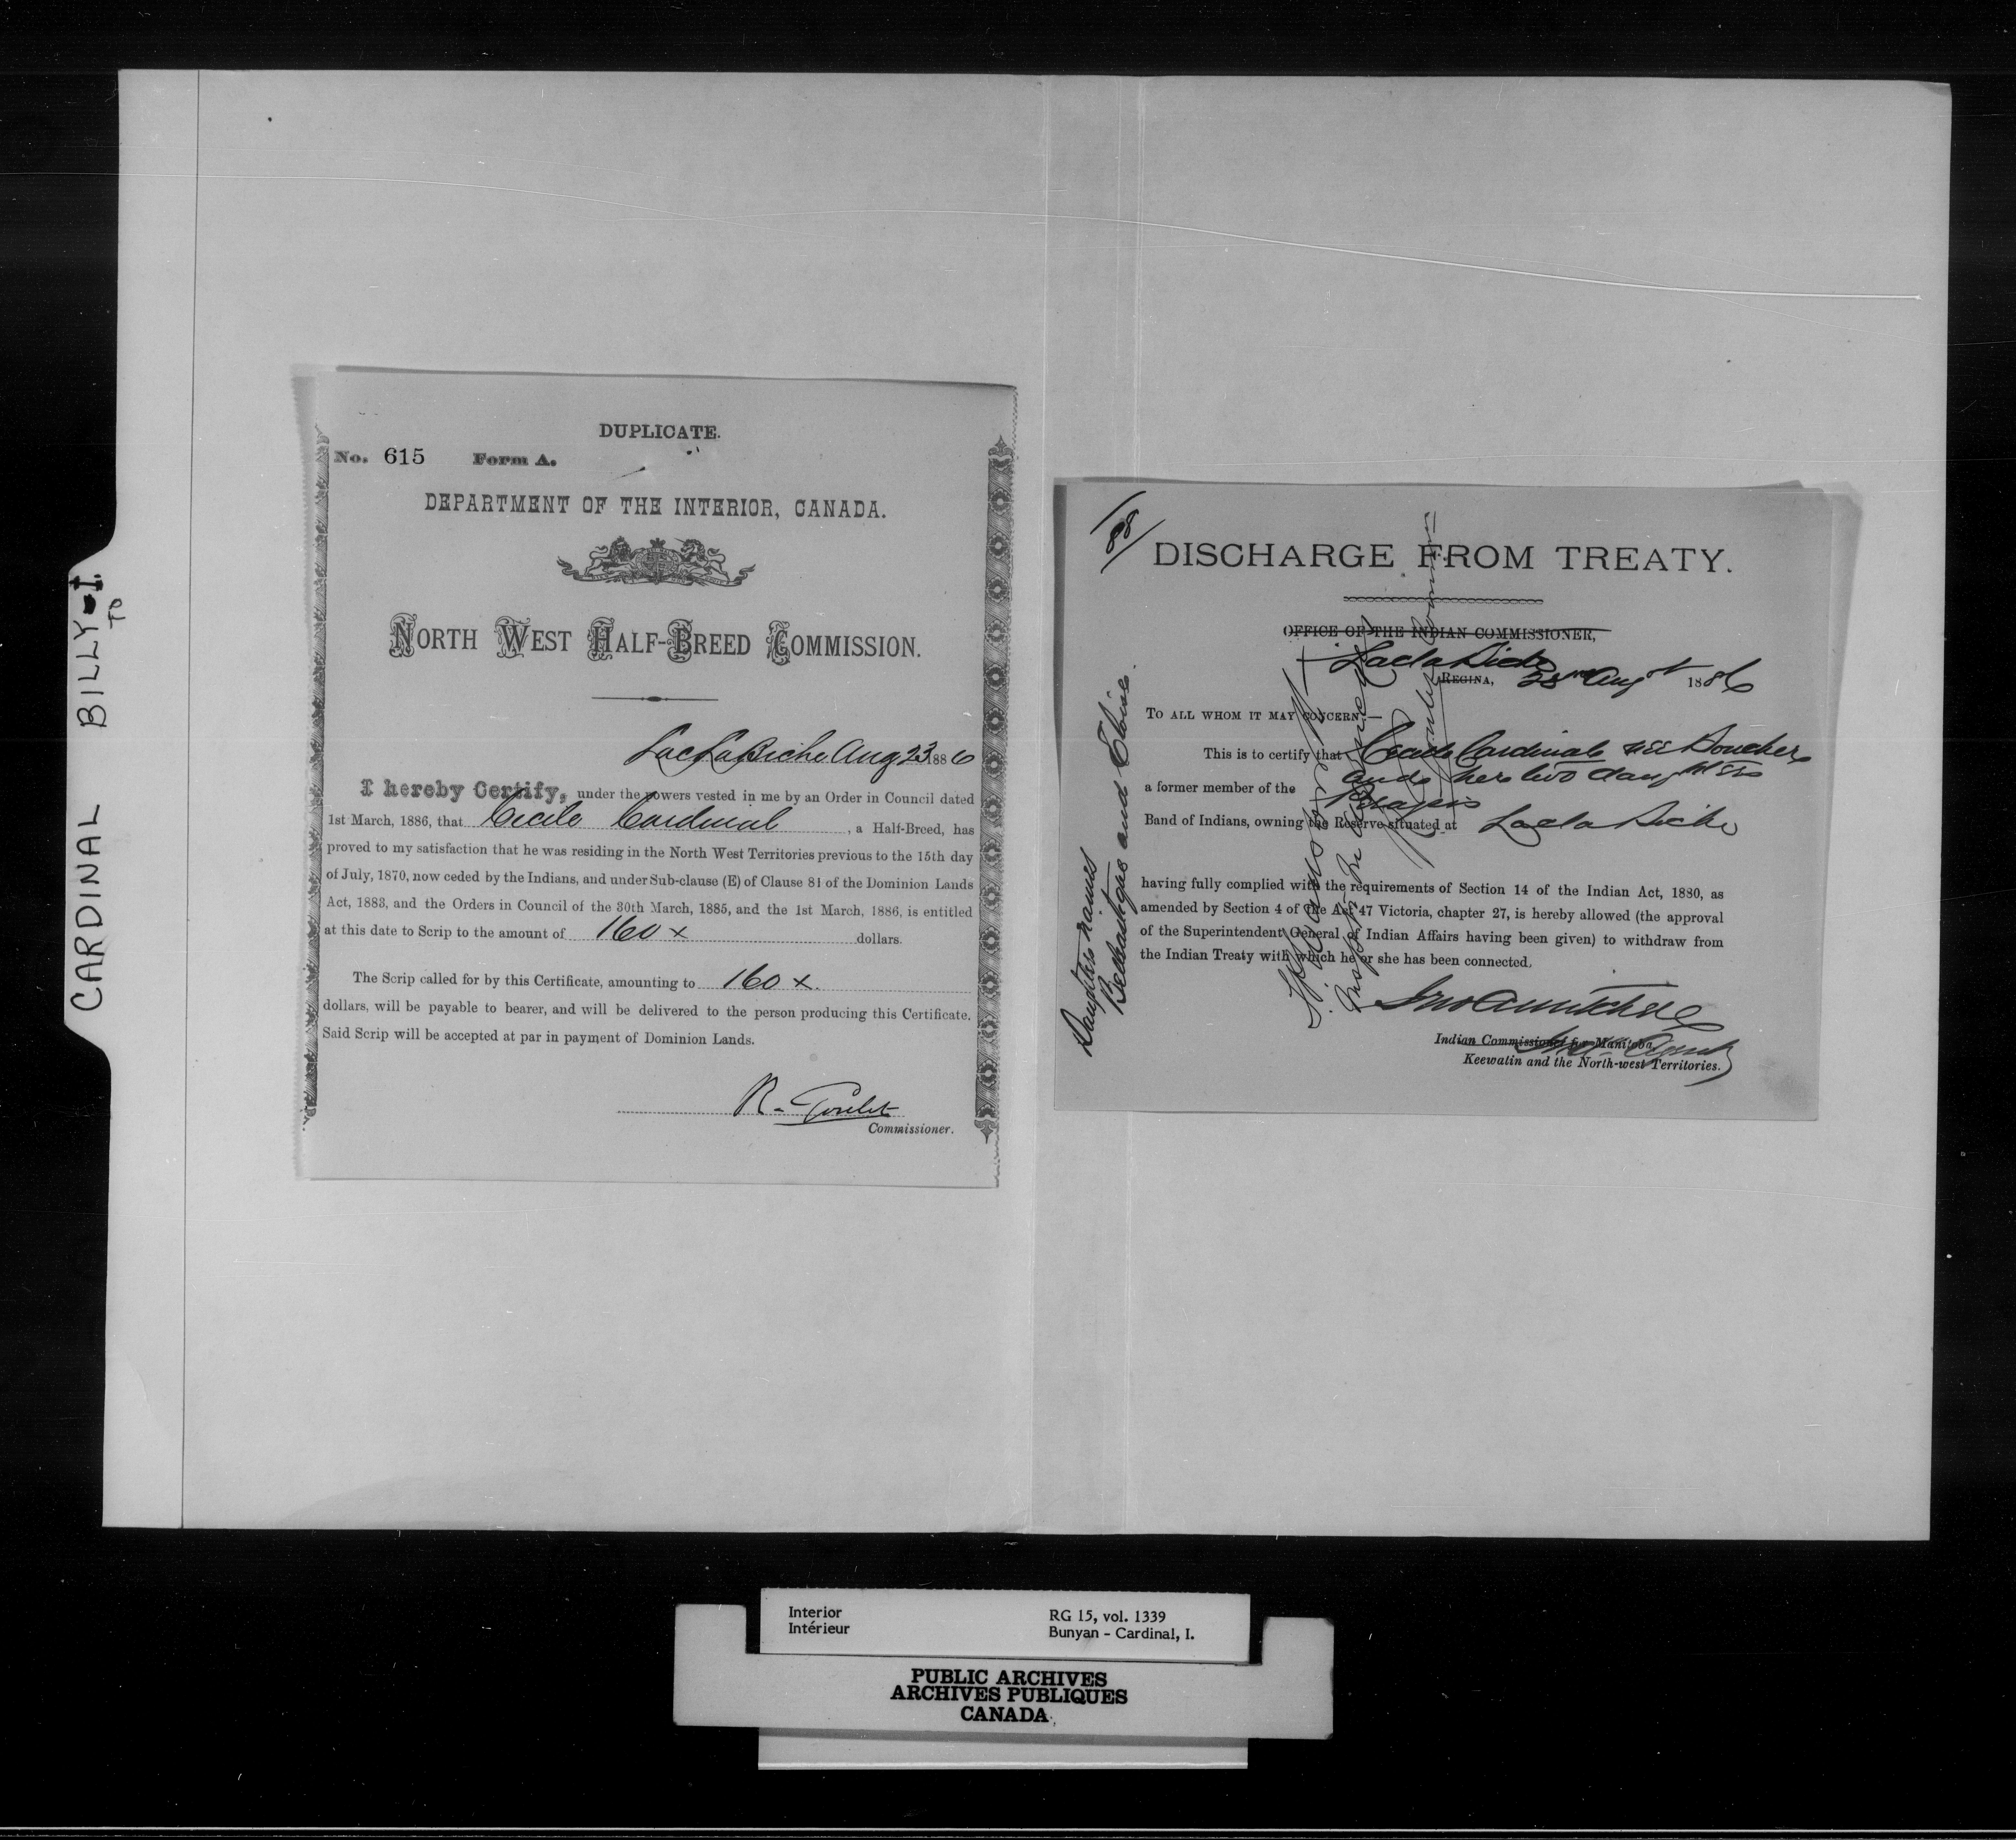 CARDINAL BILLY-I.
TO
DUPLICATE.
No. 615 Form A.
DEPARTMENT OF THE INTERIOR, CANADA.
NORTH WEST HALF-BREED COMMISSION.
Lac La Biche Aug 23 1886
I hereby Certify, under the powers vested in me by an Order in Council dated
1st March, 1886, that Cecile Cardinal, a Half-Breed, has
proved to my satisfaction that he was residing in the North West Territories previous to the 15th day
of July, 1870, now ceded by the Indians, and under Sub-clause (E) of Clause 81 of the Dominion Lands
Act, 1883, and the Orders in Council of the 30th March, 1885, and the 1st March, 1886, is entitled
at this date to Scrip to the amount of 160 x dollars.
The Scrip called for by this Certificate, amounting to 160 x.
dollars, will be payable to bearer, and will be delivered to the person producing this Certificate.
Said Scrip will be accepted at par in payment of Dominion Lands.
R. Goulet
Commissioner.
188
DISCHARGE FROM TREATY.
OFFICE OF THE INDIAN COMMISSIONER,
Lac la Biche
REGINA, August 1886
TO ALL WHOM IT MAY CONCERN:—
This is to certify that Cecile Cardinal née Boucher
and her two daughters
a former member of the
Band of Indians, owning the Reserve situated at Lac la Biche
having fully complied with the requirements of Section 14 of the Indian Act, 1880, as
amended by Section 4 of the Act 47 Victoria, chapter 27, is hereby allowed (the approval
of the Superintendent General of Indian Affairs having been given) to withdraw from
the Indian Treaty with which he or she has been connected.
Jno A Mitchell
Indian Commissioner for Manitoba
Agent
Keewatin and the North-west Territories.
Daughters names
and Eloise.
Interior
Intérieur
RG 15, vol. 1339
Bunyan - Cardinal, I.
PUBLIC ARCHIVES
ARCHIVES PUBLIQUES
CANADA